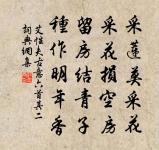 采蓮莫采花
采花損空房
留房結青子
種作明年香
艾性夫古意六首其二
詞典網集